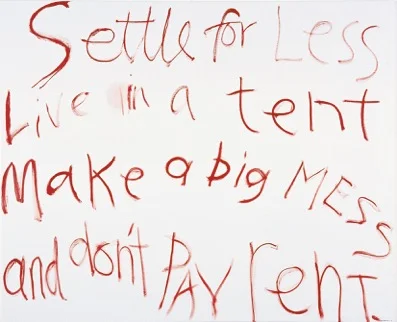 Settle for Less
Live in a tent
Make a big MESS
and don't PAY rent.